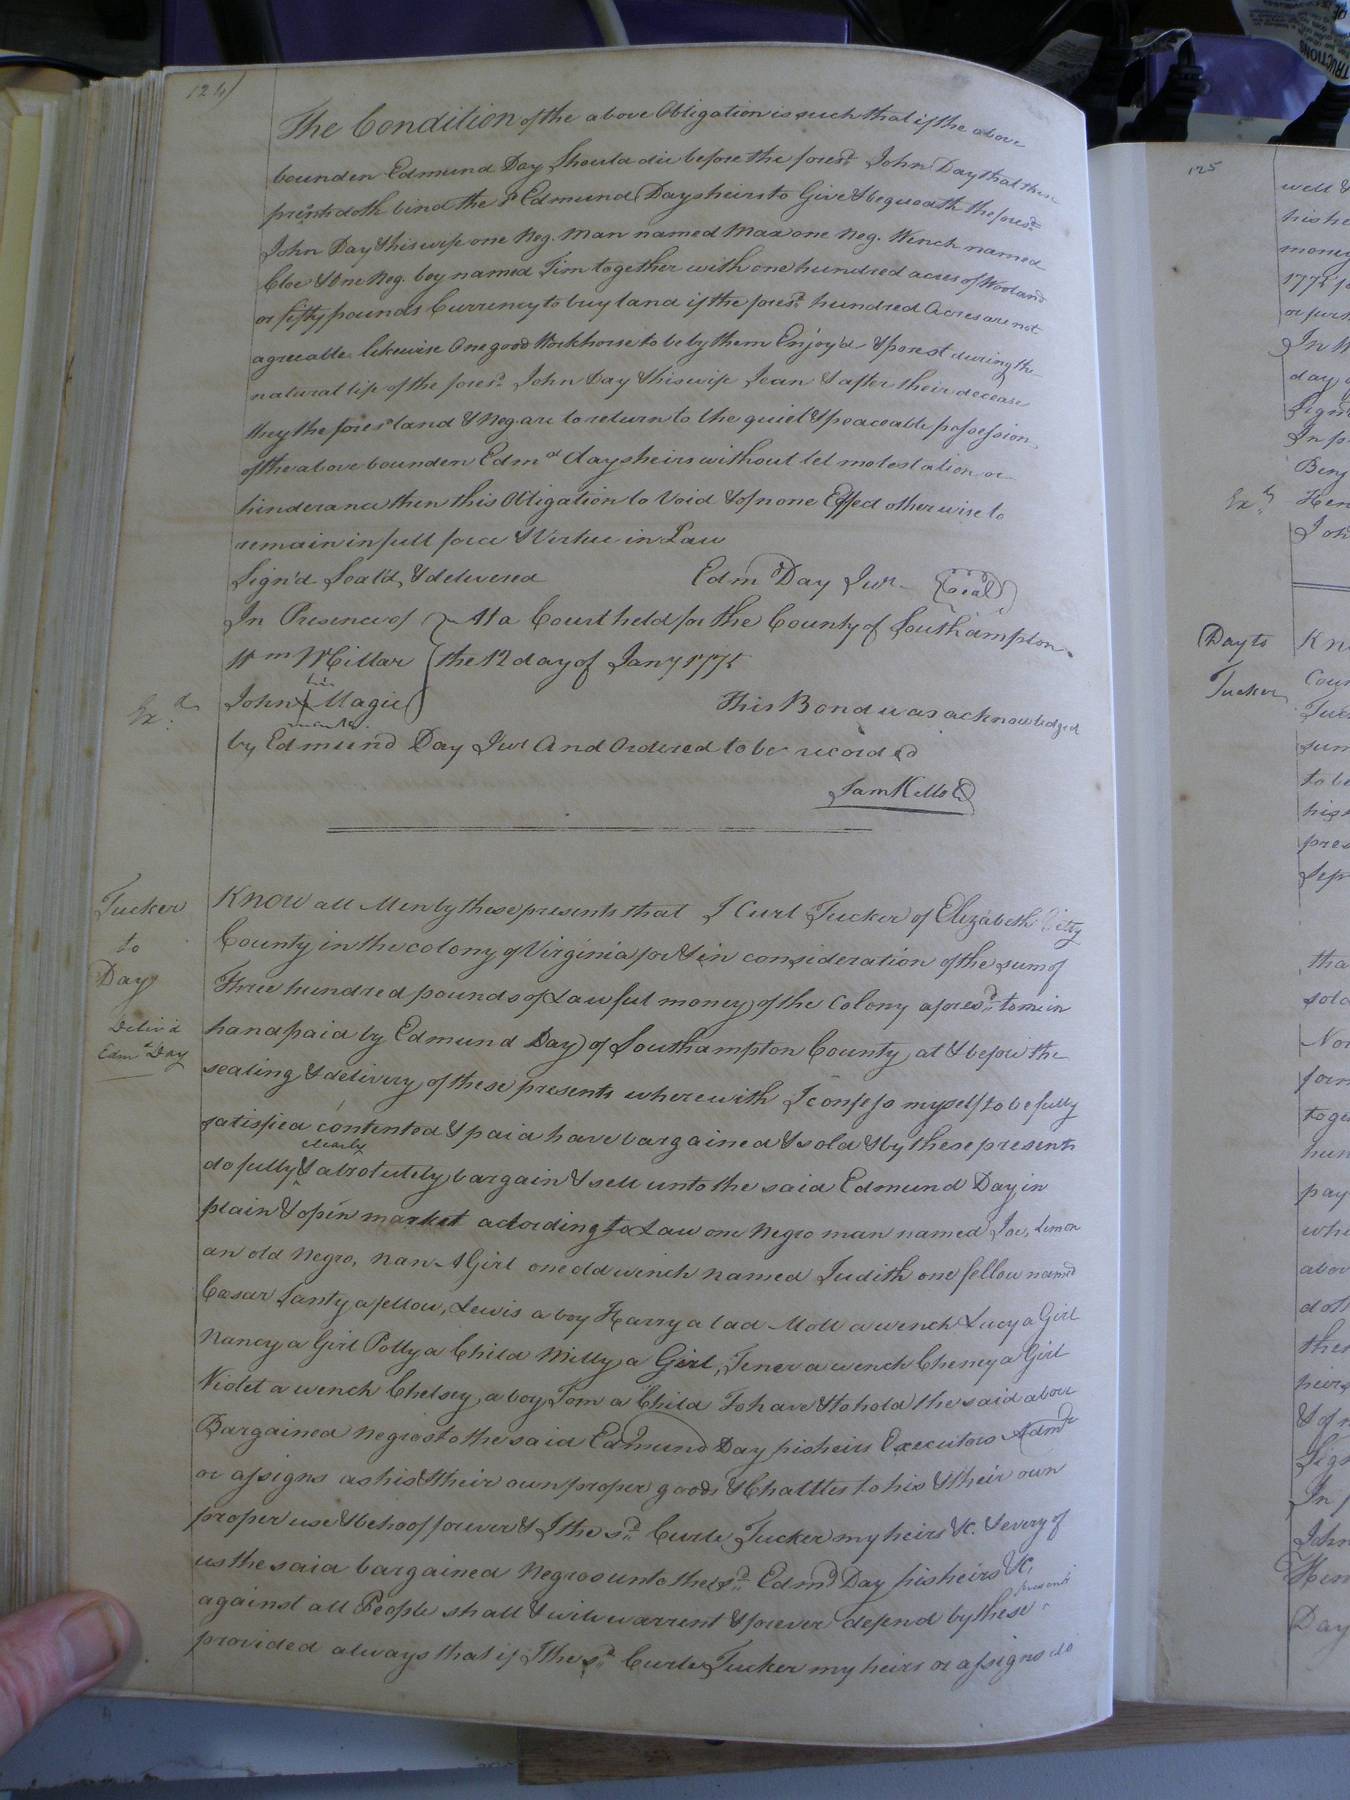 124)
The Condition of the above Obligation is such that if the above
bounden Edmund Day Should die before the foresd John Day that these
prsents doth bind the sd Edmund Days heirs to Give & bequeath the foresd
John Day & his wife one Neg. Man named Max one Neg. Wench named
Cloe & One Neg. boy named Tim together with one hundred acres of Woodland
or fifty pounds Currency to buy land if the foresd hundred Acres are not
agreeable likewise One good Workhorse to be by them Enjoy'd & posest during the
natural life of the foresd John Day & his wife Jean & after their decease
they the foresd land & Neg are to return to the quiet & peaceable possession
of the above bounden Edmd days heirs without let molestation or
hinderance then this Obligation to Void & of none Effect otherwise to
remain in full force & Virtue in Law
Sign'd Seal'd, & delivered Edmd Day Jur (Seal)
In Presence of At a Court held for the County of Southampton
Wm Millar the 12 day of Jany 1775
his
Exd John Magie This Bond was acknowledged
mark
by Edmund Day Jur And Ordered to be recorded
Sam Kello C
Tucker
to
Day
Deliv'd
Edmd Day
Know all Men by these presents that I Curl Tucker of Elizabeth City
County in the colony of Virginia for & in consideration of the sum of
Three hundred pounds of Lawful money of the Colony aforesd to me in
hand paid by Edmund Day of Southampton County at & before the
sealing & delivery of these presents wherewith I confess myself to be fully
satisfied contented & paid have bargained & sold & by these presents
clearly
do fully & absolutely bargain & sell unto the said Edmund Day in
plain & open market according to Law one Negro man named Joe, Simon
an old Negro, Nan A Girl one old wench named Judith one fellow named
Cæsar Santy a fellow, Lewis a boy Harry a lad Moll a wench Lucy a Girl
Nancy a Girl Polly a Child Milly a Girl, Tener a wench Cheney a Girl
Violet a wench Chelsey a boy Tom a Child To have & to hold the said above
Bargained Negros to the said Edmund Day his heirs Executors Admrs
or assigns as his & their own proper goods & Chattles to his & their own
proper use & behoof forever & I the sd Curle Tucker my heirs &c. & every of
us the said bargained Negros unto the sd Edmd Day his heirs &c.
presents
against all People shall & will warrent & forever defend by these
provided always that if I the sd Curle Tucker my heirs or assigns do
125
well &
his he
money
1775
In W
day
Sign
In p
Benj
Exd Hen
Joh
Day to
Tucker
Kn
Coun
Tuc
sum
to be
his
pres
Sep
tha
sold
Nor
form
toge
hun
pay
whi
abov
doth
thei
heirs
& of n
Sign
In p
John
Hen
Day